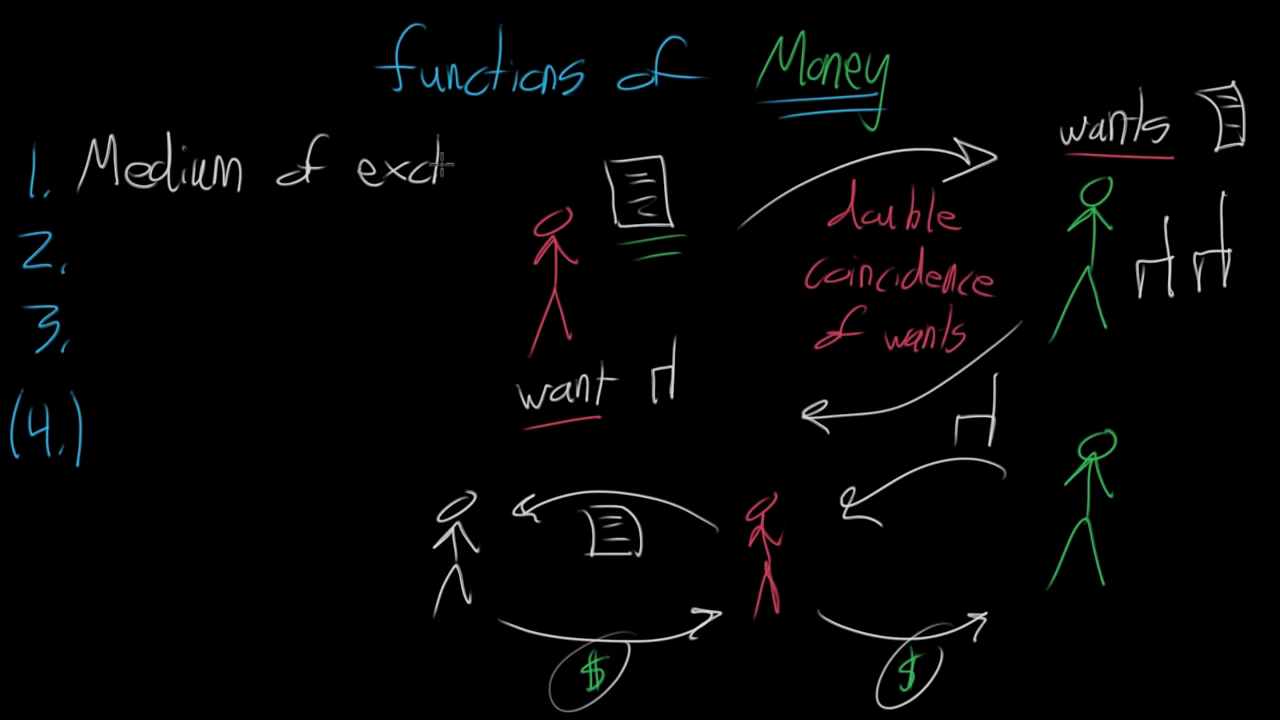 functions of Money
1. Medium of exch
2.
3.
(4.)
wants
double
coincidence
of wants
want
$
$